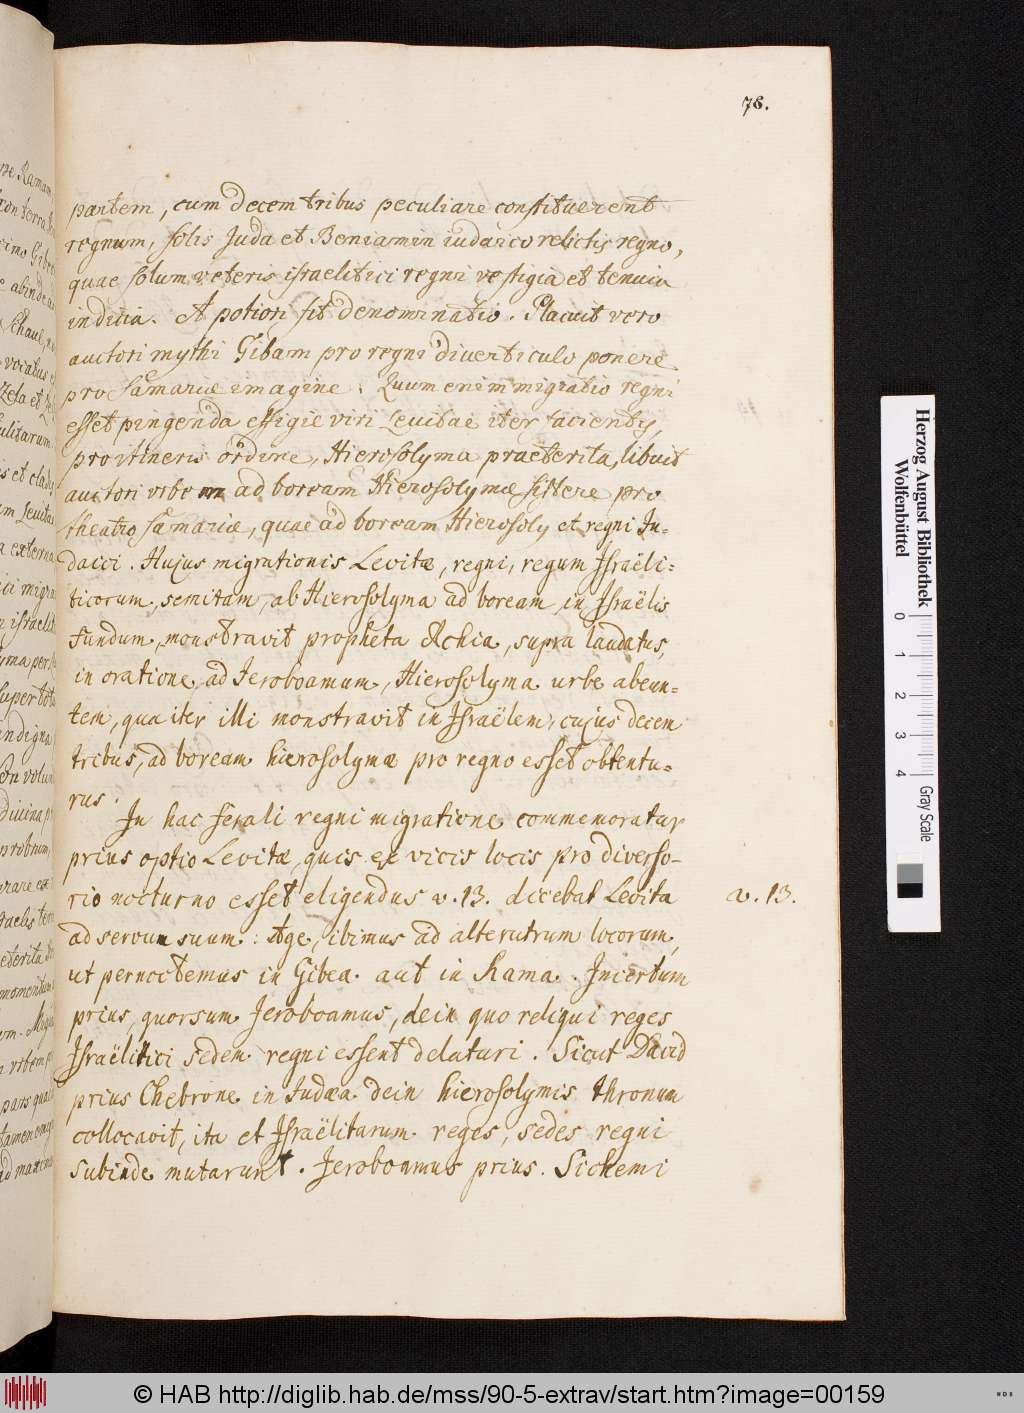 78.
partem, cum decem tribus peculiare constituerent
regnum, solis Juda et Beniamin iudaico relictis regno,
quae solum veteris israelitici regni vestigia et tenuia
indicia. A potiori fit denominatio. Placuit vero
auctori mythi Gibam pro regni diverticulo ponere
pro Samariæ imagine. Quum enim migratio regni
esset pingenda effigie viri Levitae iter facientis,
pro itineris ordine, Hierosolyma praeterita, libuit
auctori urbem ad boream Hierosolymæ sistere pro
theatro Samariæ, quae ad boream Hierosoly et regni Ju-
daici. Hujus migrationis Levitæ, regni, regum Israëli-
ticorum, semitam, ab Hierosolyma ad boream, in Israëlis
fundum, monstravit propheta Achia, supra laudatus,
in oratione, ad Jeroboamum, Hierosolyma urbe abeun-
tem, qua iter illi monstravit in Israëlem, cujus decem
tribus, ad boream hierosolymæ pro regno esset obtentu-
rus.
In hac ferali regni migratione commemoratur
prius optio Levitæ, quis ex vicis locis pro diverso-
rio nocturno esset eligendus v. 13. dicebat Levita
v. 13.
ad servum suum: Age, ibimus ad alterutrum locorum,
ut pernoctemus in Gibea aut in Rama. Incertum
prius, quorsum Jeroboamus, dein quo reliqui reges
Israëlitici sedem regni essent delaturi. Sicut David
prius Chebrone in Judæa dein hierosolymis thronum
collocavit, ita et Israëlitarum reges, sedes regni
subinde mutarunt. Jeroboamus prius Sichemi
Herzog August Bibliothek
Wolfenbüttel
0 1 2 3 4 Gray Scale
© HAB http://diglib.hab.de/mss/90-5-extrav/start.htm?image=00159